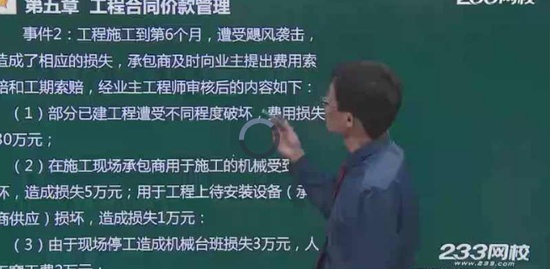 第五章 工程合同价款管理
233网校
事件2：工程施工到第6个月，遭受飓风袭击，
造成了相应的损失，承包商及时向业主提出费用索
赔和工期索赔，经业主工程师审核后的内容如下：
（1）部分已建工程遭受不同程度破坏，费用损失
30万元；
（2）在施工现场承包商用于施工的机械受到
坏，造成损失5万元；用于工程上待安装设备（承
商供应）损坏，造成损失1万元；
（3）由于现场停工造成机械台班损失3万元，人
窝工费2万元；
233网校